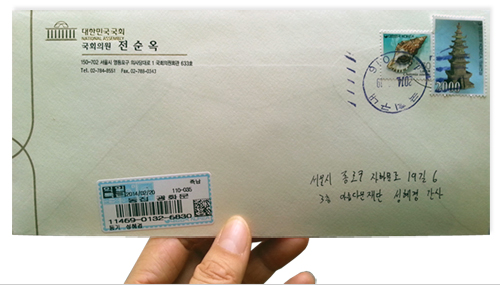 대한민국국회
NATIONAL ASSEMBLY
국회의원 전순옥
150-702 서울시 영등포구 의사당대로 1 국회의원회관 633호
Tel. 02-784-8551 Fax. 02-788-0343
2000
2014
익일
2014/02/20
110-035
11469-0132-6830
등기
서울시 종로구 19길 6
3층 아름다운재단 간사